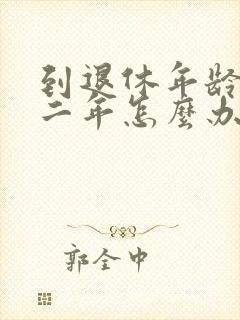 到退休年龄
二年怎麽办
郭全中